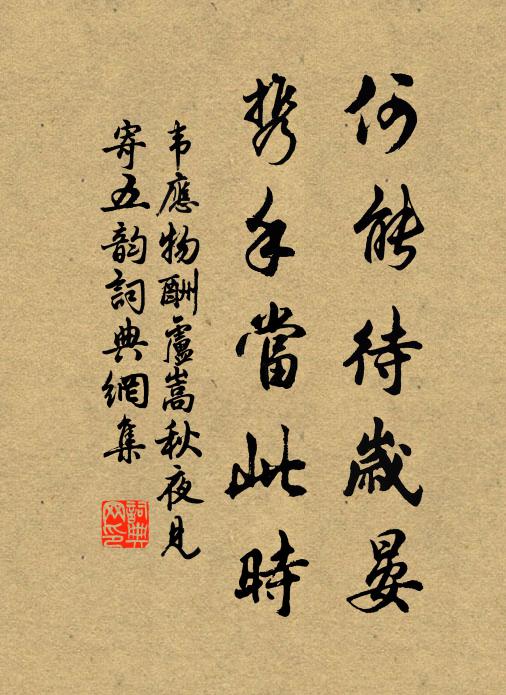 何能待歲晏
携手當此時
韦應物酬盧嵩秋夜見
寄五韵詞典網集
詞典
网印